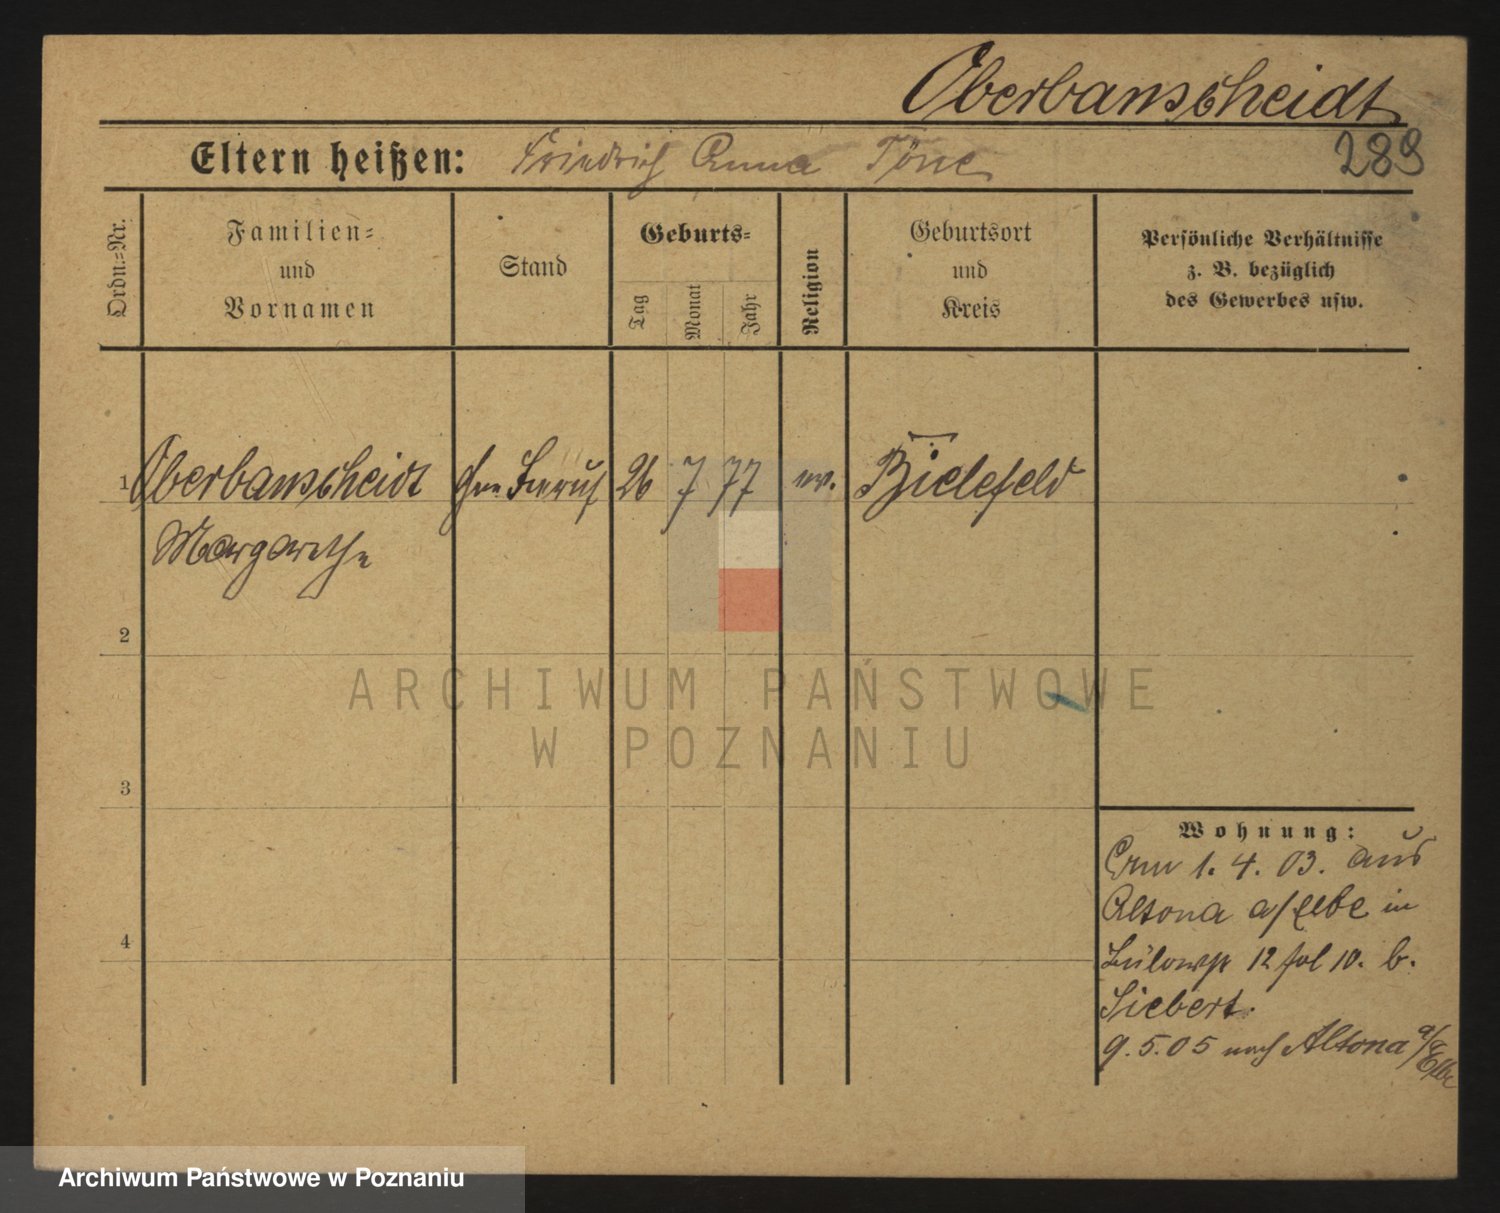 Oberbanscheidt
289
Eltern heißen: Friedrich Anna Töne
Ordn.-Nr.
Familien- und Vornamen
Stand
Geburts-
Tag
Monat
Jahr
Religion
Geburtsort und Kreis
Persönliche Verhältnisse
z. B. bezüglich
des Gewerbes usw.
1 Oberbanscheidt 26 7 77 ev. Bielefeld
Margarethe
2
3
4
ARCHIWUM PAŃSTWOWE
W POZNANIU
Wohnung:
1. 4. 03. aus
Altona a/Elbe in
Bülowstr 12 10. b.
Siebert.
9. 5. 05 nach Altona a/Elbe
Archiwum Państwowe w Poznaniu